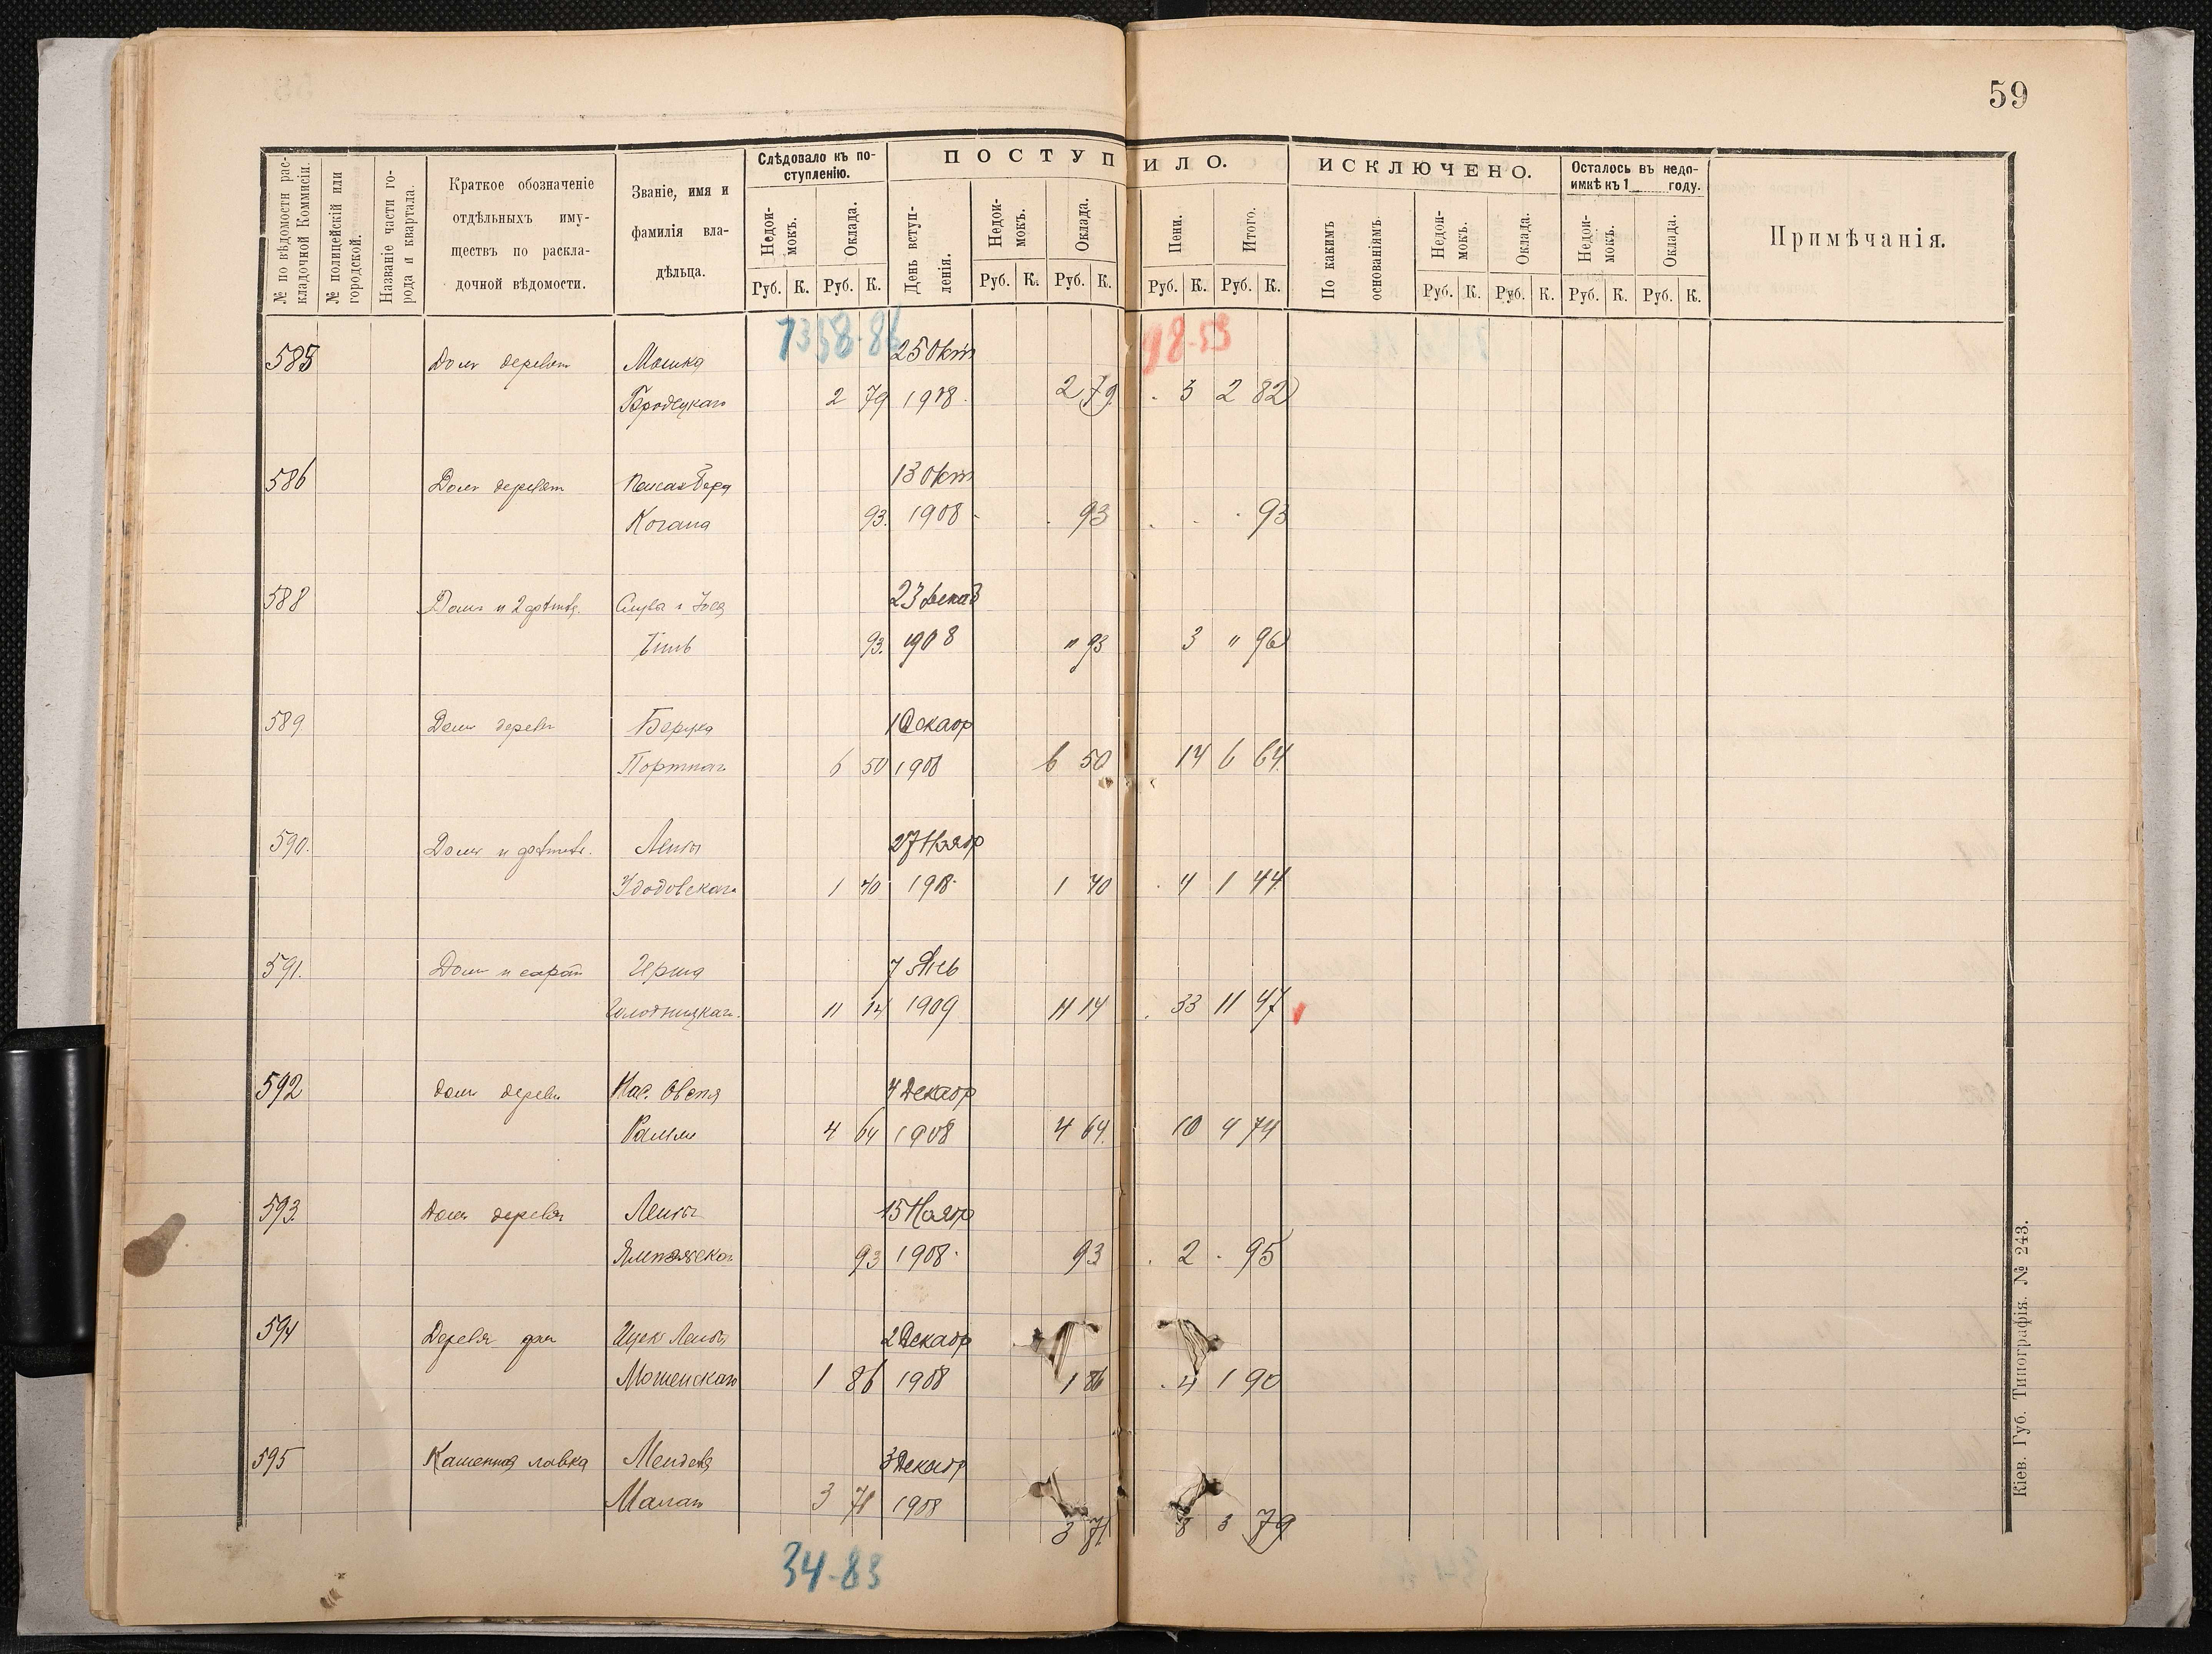 59
№ по вѣдомости рас-
кладочной Коммисіи.
№ полицейскій или
городской.
Названіе части го-
рода и квартала.
Краткое обозначеніе
отдѣльныхъ иму-
ществъ по раскла-
дочной вѣдомости.
Званіе, имя и
фамилія вла-
дѣльца.
Слѣдовало къ по-
ступленію.
Недои-
мокъ.
Оклада.
Руб. К. Руб. К.
ПОСТУПИЛО.
День вступ-
ленія.
Недои-
мокъ.
Оклада.
Пени.
Итого.
Руб. К. Руб. К. Руб. К. Руб. К.
ИСКЛЮЧЕНО.
По какимъ
основаніямъ
Недои-
мокъ.
Оклада.
Руб. К. Руб. К.
Осталось въ недо-
имкѣ къ 1 году.
Недои-
мокъ.
Оклада.
Руб. К. Руб. К.
Примѣчанія.
7358-86 98-53
585 Домъ деревян Мошка 25 Окт
Бродецкаго 2 79 1908 2 79 . 3 2 82
586 Домъ деревян 13 Окт
Когана 93. 1908 - . 93 . . . 93
588 Домъ и 2 23 декаб
93. 1908 " 93 3 " 96
589 Домъ дерев Берка 1 Декабр
Портнаг 6 50 1908 6 50 14 6 64
590. Домъ и Лейбы 27 Ноябр
1 40 1908. 1 40 . 4 1 44
591. Домъ и сарай Герша 7 Янв
11 14 1909 11 14 . 33 11 47
592 домъ дерев Нас. Овсея 4 Декабр
4 64 1908 4 64. 10 4 74
593. Домъ дерев Лейбы 15 Ноябр
93 1908. 93 . 2 . 95
594 Деревя дом Ицек Лейбы 2 Декабр
Мошенскаго 1 86 1908 1 86 . 4 1 90
595 Каменная лавка Менделя 3 Декабр
3 71 1908
3 71 8 3 79
34-83
Кіев. Губ. Типографія. № 243.